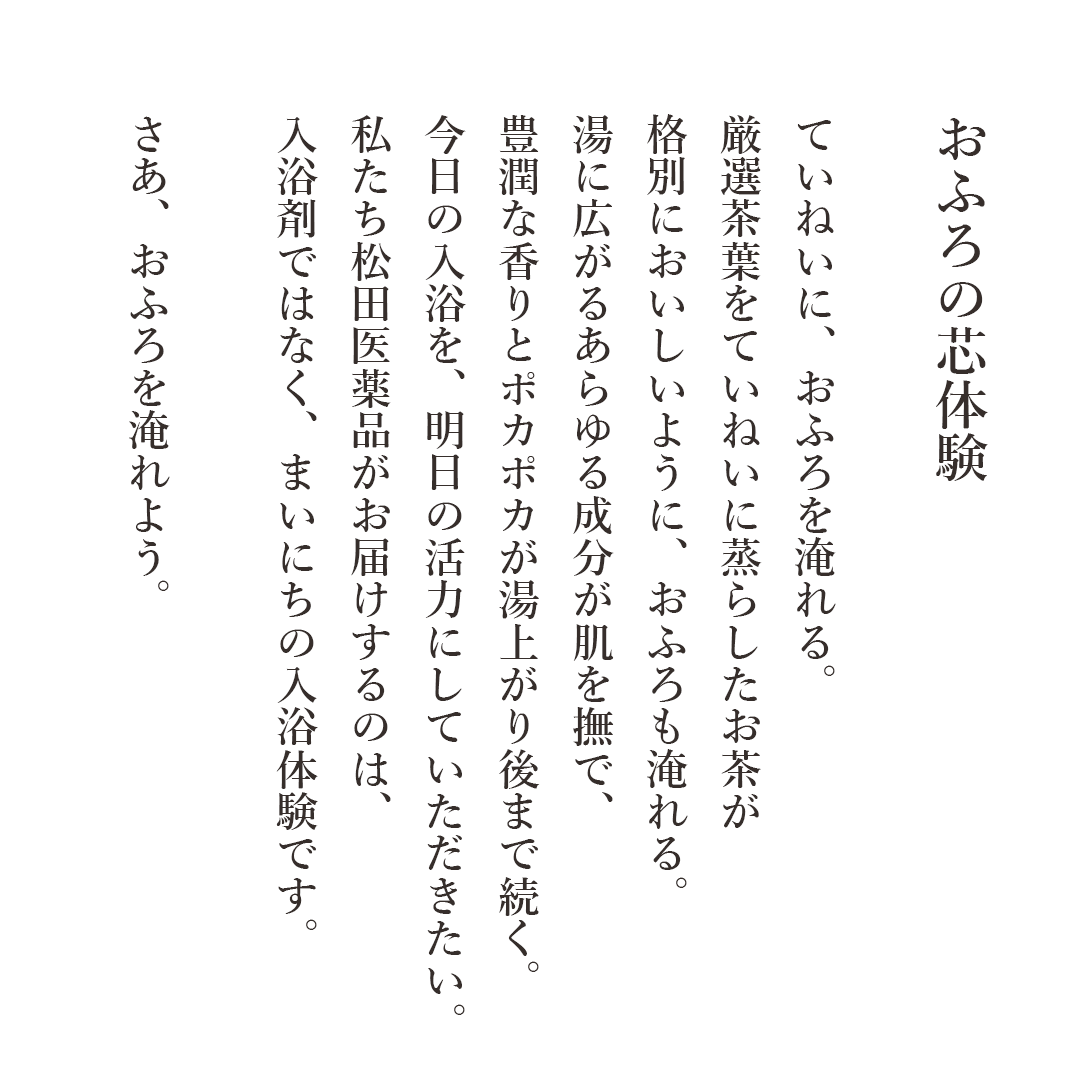 おふろの芯体験
ていねいに、おふろを淹れる。
厳選茶葉をていねいに蒸らしたお茶が
格別においしいように、おふろも淹れる。
湯に広がるあらゆる成分が肌を撫で、
豊潤な香りとポカポカが湯上がり後まで続く。
今日の入浴を、明日の活力にしていただきたい。
私たち松田医薬品がお届けするのは、
入浴剤ではなく、まいにちの入浴体験です。
さあ、おふろを淹れよう。